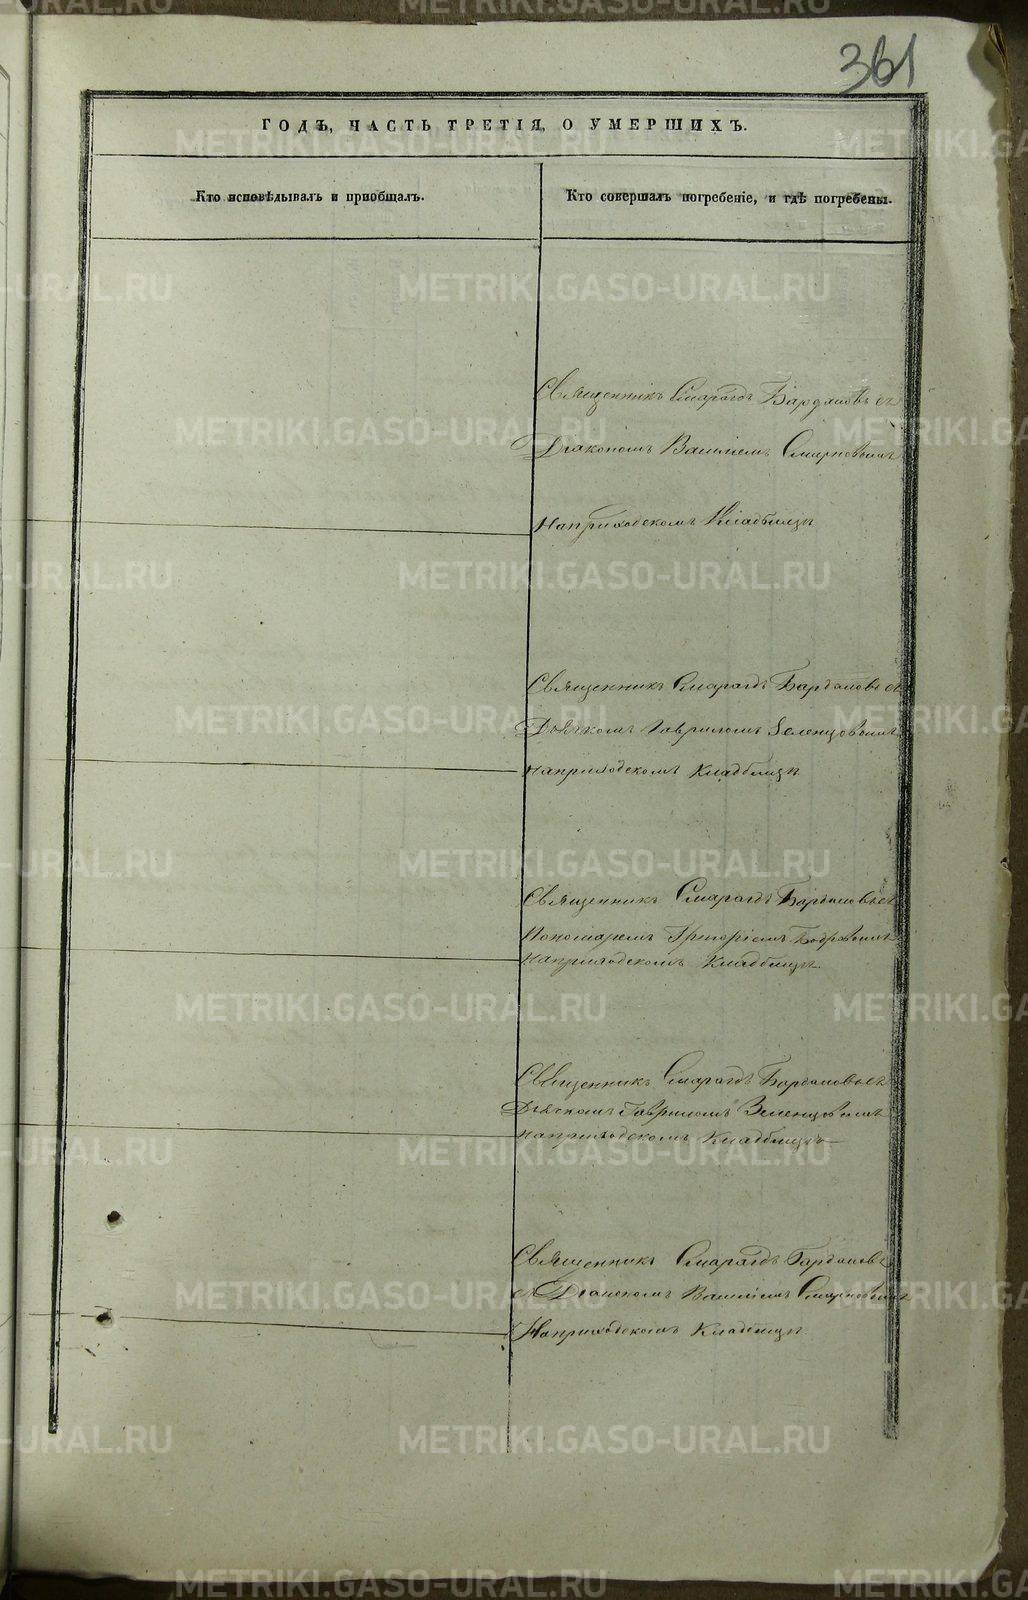 361
ГОДЪ, ЧАСТЬ ТРЕТІЯ, О УМЕРШИХЪ.
Кто исповѣдывалъ и пріобщалъ.
Кто совершалъ погребеніе, и гдѣ погребены.
Священникъ Смарагдъ Бардановъ съ
Діакономъ Василіемъ Смирновымъ
На приходскомъ Кладбищѣ
Священникъ Смарагдъ Бардановъ съ
Дьячкомъ Гавриломъ Зеленцовымъ
на приходскомъ Кладбищѣ
Священникъ Смарагдъ Бардановъ съ
Пономаремъ Григоріемъ Бобровымъ
На приходскомъ Кладбищѣ
Священникъ Смарагдъ Бардановъ съ
Дьячкомъ Гавриломъ Зеленцовымъ
на приходскомъ Кладбищѣ
Священникъ Смарагдъ Бардановъ
съ Діакономъ Василіемъ Смирновымъ
На приходскомъ Кладбищѣ
METRIKI.GASO-URAL.RU